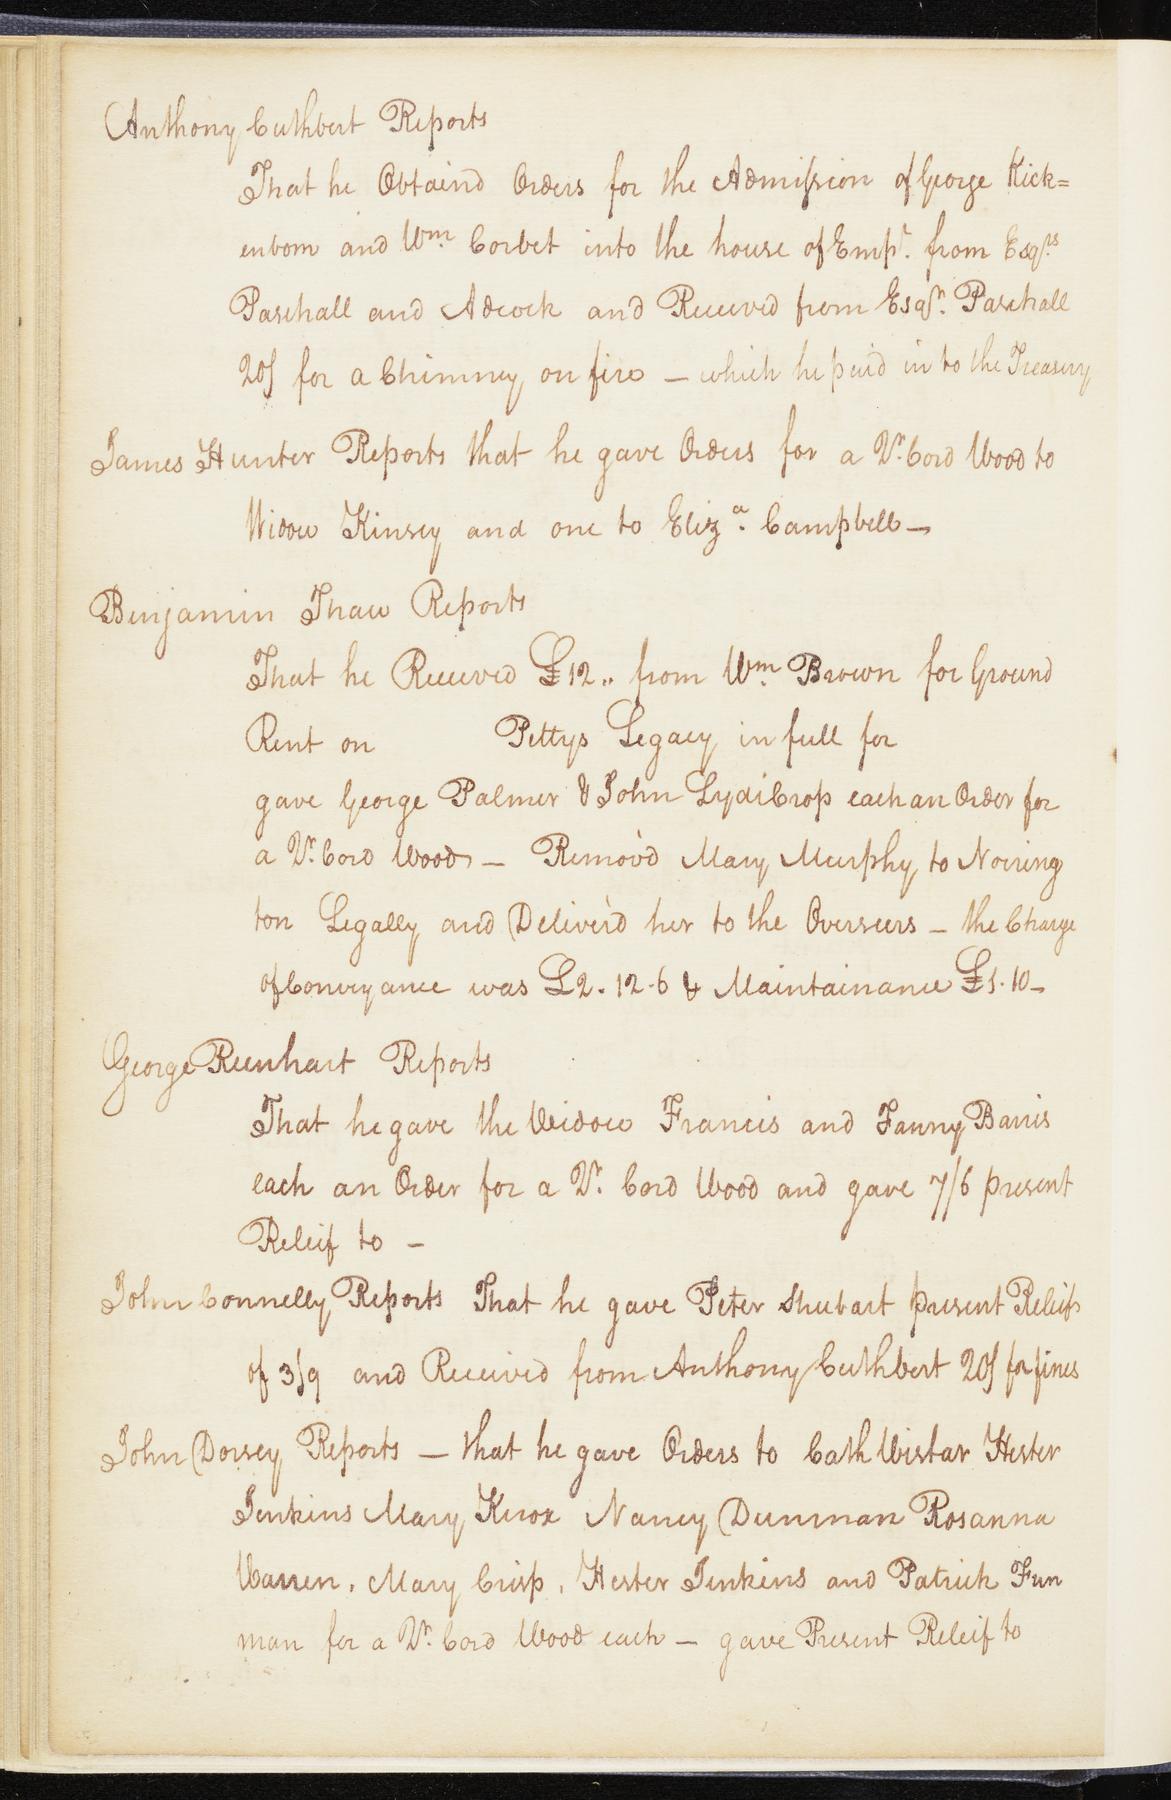 Anthony Cuthbert Reports
That he Obtaind Orders for the Admission of George Kick=
enbom and Wm. Corbet into the house of Empt. from Esqrs
Paschall and Adcock and Received from Esqr. Paschall
20/ for a Chimney on fire — which he paid in to the Treasury
James Hunter Reports that he gave Orders for a Qr. Cord Wood to
Widow Kinsey and one to Eliza. Campbell —
Benjamin Thaw Reports
That he Received £12,, from Wm. Brown for Ground
Rent on Pettys Legacy in full for
gave George Palmer & John Lydi Crop each an Order for
a Qr. Cord Wood — Remov'd Mary Murphy to Noring
ton Legally and Deliver'd her to the Overseers — the Charge
of Conveyance was £2. 12. 6 & Maintainance £1. 10 —
George Reenhart Reports
That he gave the Widow Francis and Fanny Barris
each an Order for a Qr. Cord Wood and gave 7/6 present
Releif to —
John Connelly Reports That he gave Peter Shubart present Releif
of 3/9 and Received from Anthony Cuthbert 20/ for fines
John Dorsey Reports — that he gave Orders to Cath Wistar Hester
Jenkins Mary Knox Nancy Dunman Rosanna
Warren, Mary Crisp, Hester Jenkins and Patrick Fun
man for a Qr. Cord Wood each — gave Present Releif to